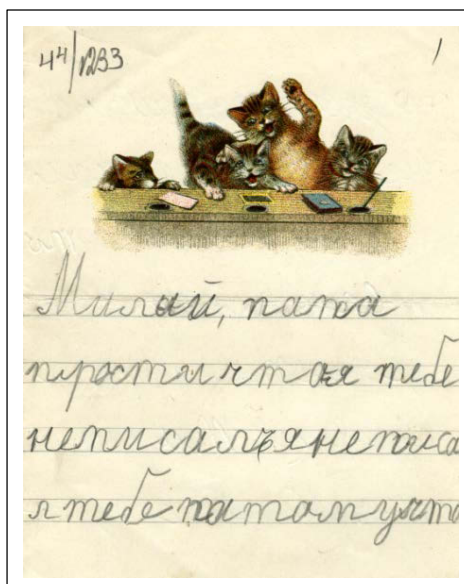 44/1233
1
Милый, папа
прости что я тебе
неписалъя неписа
л тебе патамучто